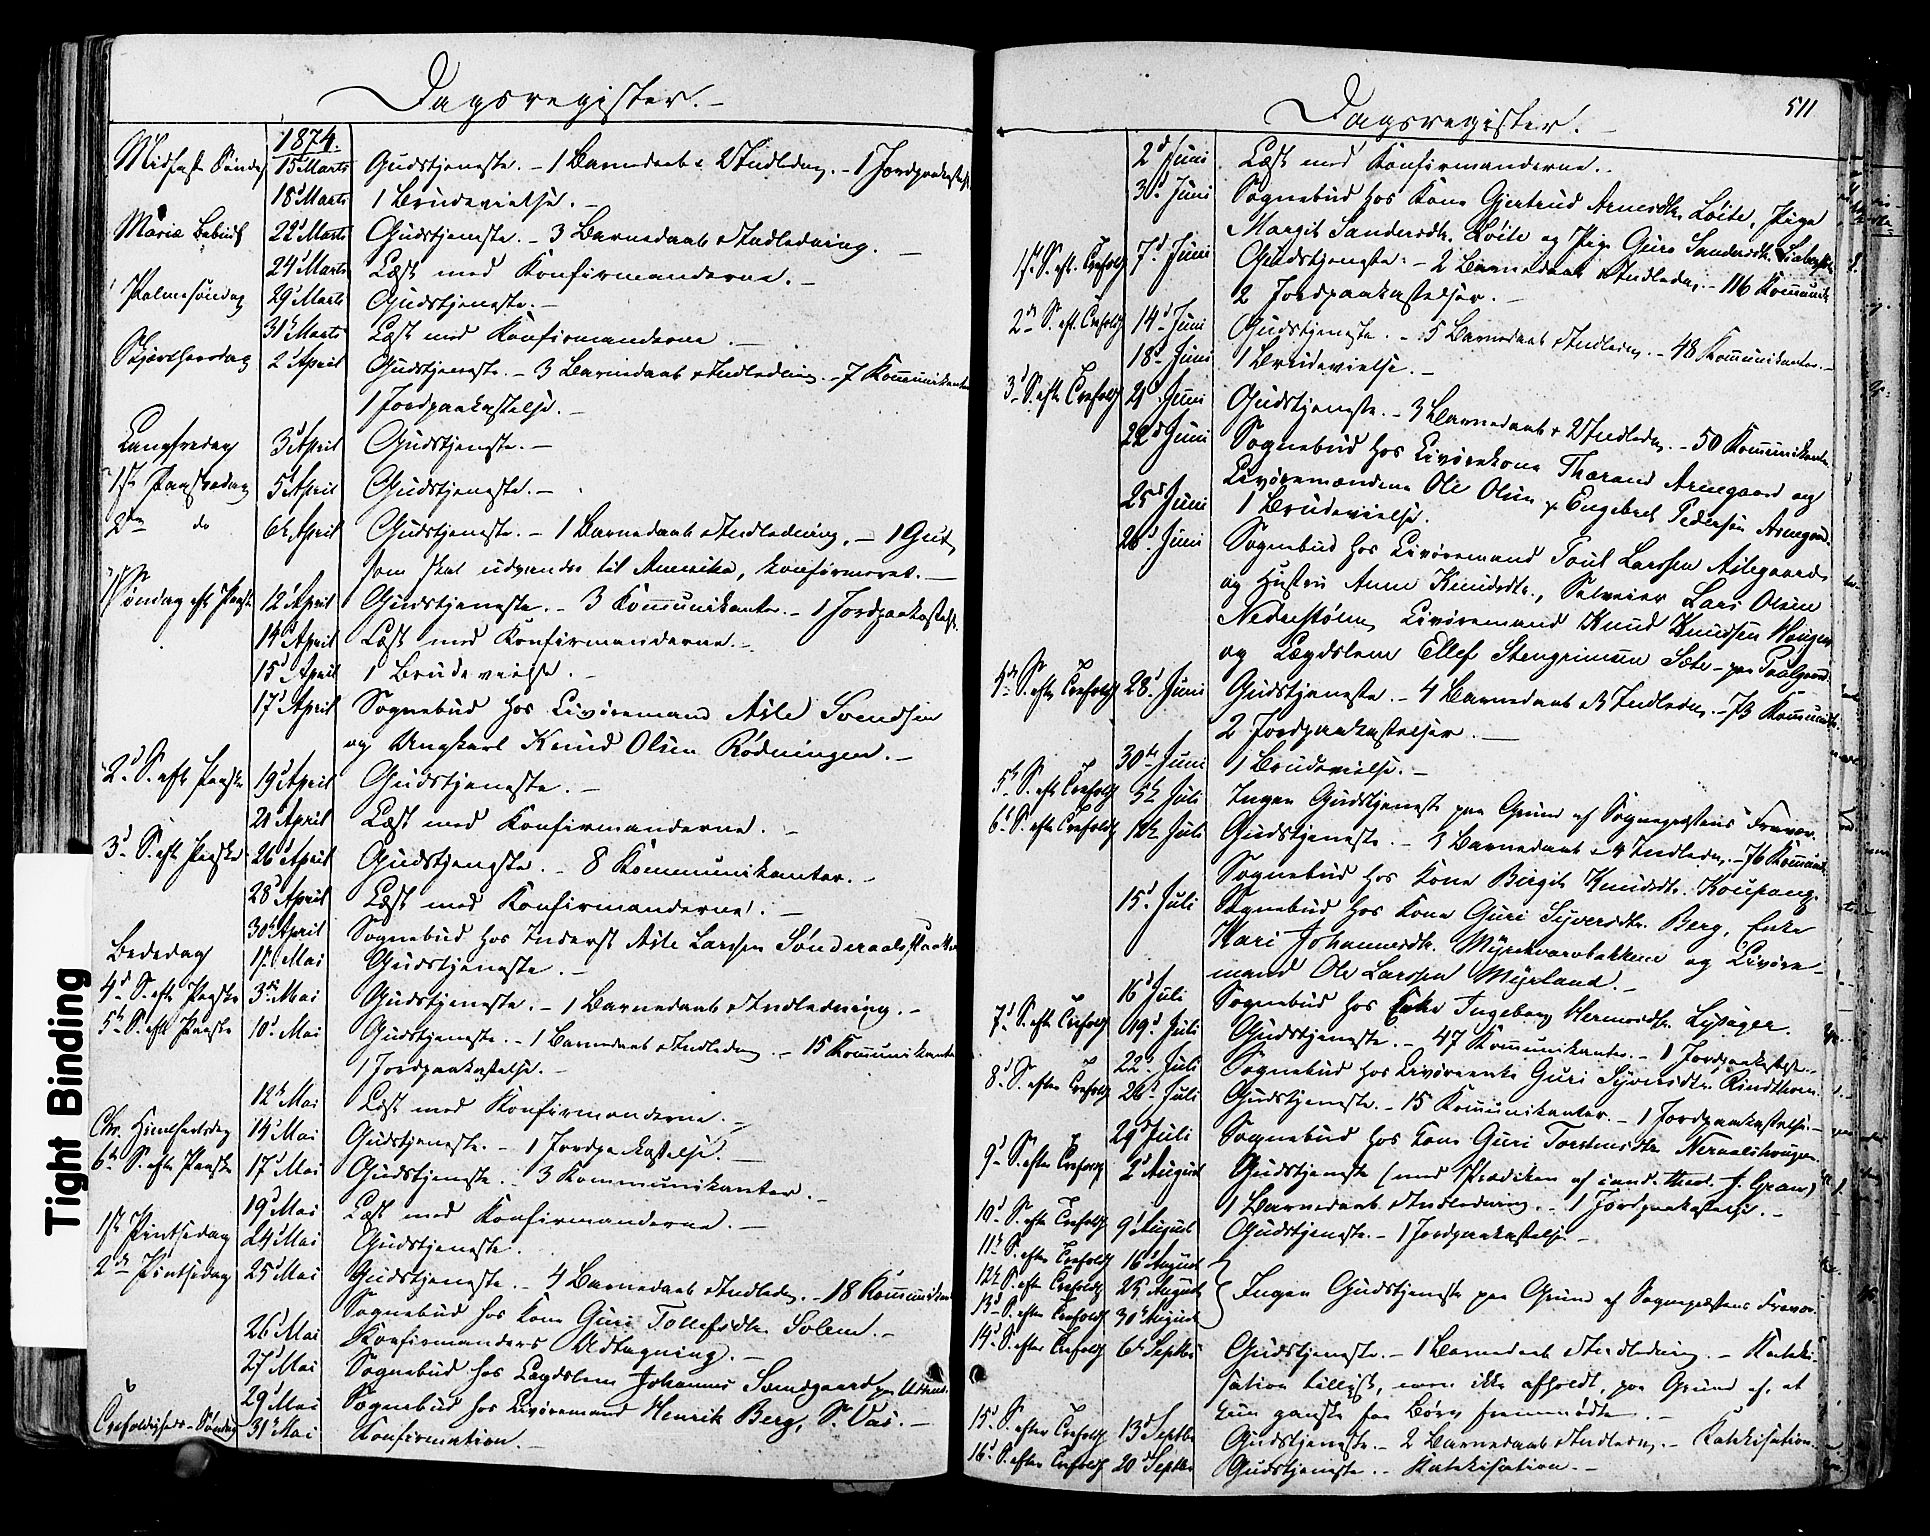 Dagsregister. -
1874.
Midfaste Søndag 15 Marts Gudstjeneste. - 1 Barnedaab & Indledng. - 1 Jordpaakastelse
18 Marts 1 Brudevielse. -
Mariæ Bebud. 22 Marts Gudstjeneste. - 3 Barnedaab & Indledning. -
24 Marts Læst med Konfirmanderne. -
Palmesøndag 29 Marts Gudstjeneste. -
31 Marts Læst med Konfirmanderne. -
Skjærthorsdag 2 April Gudstjeneste. - 3 Barnedaab & Indledning. - 7 Kommunikanter
1 Jordpaakastelse. -
Langfredag 3 April Gudstjeneste. -
1ste Paaskedag 5 April Gudstjeneste. -
2den do 6te April Gudstjeneste. - 1 Barnedaab & Indledning. - 1 Gut,
som skal udvandre til Amerika, konfirmeret. -
1 Søndag eft. Paaske 12 April Gudstjeneste. - 3 Kommunikanter. - 1 Jordpaakastelse.
14 April Læst med Konfirmanderne. -
15 April 1 Brudevielse. -
17 April Sognebud hos Livøremand Asle Svendsen
og Ungkarl Knud Olsen Rødningen. -
2d S. eft. Paaske 19 April Gudstjeneste. -
21 April Læst med Konfirmanderne. -
3d S. eft. Paaske 26 April Gudstjeneste. - 8 Kommunikanter. -
28 April Læst med Konfirmanderne. -
30 April Sognebud hos Inderst Asle Larssen
Bededag 1ste Mai Gudstjeneste. -
4d S. eft. Paaske 3die Mai Gudstjeneste. - 1 Barnedaab & Indledning. -
5te S. eft. Paaske 10d Mai Gudstjeneste. - 1 Barnedaab & Indledng. - 15 Kommunikanter
1 Jordpaakastelse. -
12te Mai Læst med Konfirmanderne. -
Chr. Himelfartsdag 14 Mai Gudstjeneste. - 1 Jordpaakastelse. -
6te S. efter Paaske 17d Mai Gudstjeneste. - 3 Kommunikanter. -
19d Mai Læst med Konfirmanderne. -
1ste Pintsedag 24d Mai Gudstjeneste.
2den Pintsedag 25d Mai Gudstjeneste. - 4 Barnedaab & Indledn. - 18 Kommunikanter
Sognebud hos Kone Guri Tollefsdtr. Solem. -
26d Mai Konfirmanders Udtagning. -
27d Mai Sognebud hos Lægdslem Johannes
29d Mai Sognebud hos Livøremand Henrik Berg, S. Vas. -
Trefoldigheds-Søndag 31te Mai Konfirmation. -
Dagsregister. -
511
2d Juni Læst med Konfirmanderne. -
3d Juni Sognebud hos Kone Gjertrud Arnesdtr. Løite, Pige
Margit Sandersdtr. Løite og Pige Guro Sandersdtr.
1ste S. eft. Trefold. 7d Juni Gudstjeneste. - 2 Barnedaab & Indledn. - 116 Kommunik.
2 Jordpaakastelser. -
2den S. eft. Trefold. 14d Juni Gudstjeneste. - 5 Barnedaab & Indledn. - 48 Kommunikanter. -
18d Juni 1 Brudevielse. -
3d S. efter Trefold. 21d Juni Gudstjeneste. - 3 Barnedaab & 2 Indledn. - 50 Kommunikanter
22d Juni Sognebud hos Livørekone Tharand Arnegaard og
Livøremændene Ole Olsen & Engebret Pedersen Arnegaard.
25d Juni 1 Brudevielse.
26d Juni Sognebud hos Livøremand Poul Larssen Aslegaard
og Hustru Anne Knudsdtr., Selveier Lars Olsen
Nedrestølen, Livøremand Knud Knudsen Haugen
og Lægdslem Ellef Stengrimsen Sæte - paa Paalgaard.
4de S. efter Trefold. 28d Juni Gudstjeneste. - 4 Barnedaab & 3 Indledn. - 73 Kommunik.
2 Jordpaakastelser. -
30te Juni 1 Brudevielse. -
5te S. efter Trefold. 5te Juli Ingen Gudstjeneste paa Grund af Sognepræstens Fravær.
6te S. efter Trefold. 12te Juli Gudstjeneste. - 3 Barnedaab & 4 Indledn. - 76 Kommunik.
Sognebud hos Kone Birgit Knudsdtr. Koupang.
15d Juli Sognebud hos Kone Guri Syversdtr. Berg, Enke
Kari Johannesdtr. Myrekvernbakken og Livøre-
mand Ole Larssen Myrland. -
16d Juli Sognebud hos Enke Ingeborg Hermodsdtr. Lysager.
7d S. efter Trefold. 19d Juli Gudstjeneste. - 47 Kommunikanter. - 1 Jordpaakastelse. -
22d Juli Sognebud hos Livøreenke Guri Syversdtr.
8d S. efter Trefold. 26d Juli Gudstjeneste. - 15 Kommunikanter. - 1 Jordpaakastelse. -
29d Juli Sognebud hos Kone Guri Torstensdtr. Neraalshaugen.
9d S. efter Trefold. 2d August Gudstjeneste (med Prædiken af cand. theol. J. Grav)
1 Barnedaab & Indledning. - 1 Jordpaakastelse. -
10d S. efter Trefold. 9d August Gudstjeneste. - 1 Jordpaakastelse. -
11te S. efter Trefold. 16d August
12te S. efter Trefold. 23d August Ingen Gudstjeneste paa Grund af Sognepræstens Fravær.
13d S. efter Trefold. 30te August
14d S. efter Trefold. 6te Septbr Gudstjeneste. - 1 Barnedaab & Indledning. - Kateki-
sation tillyst, men ikke afholdt, paa Grund af, at
kun ganske faa Børn fremmødte. -
15d S. efter Trefold. 13d Septbr Gudstjeneste. - 2 Barnedaab & Indledn. - Katekisation. -
16d S. efter Trefold. 20d Septbr Gudstjeneste. - Katekisation. -
Tight Binding